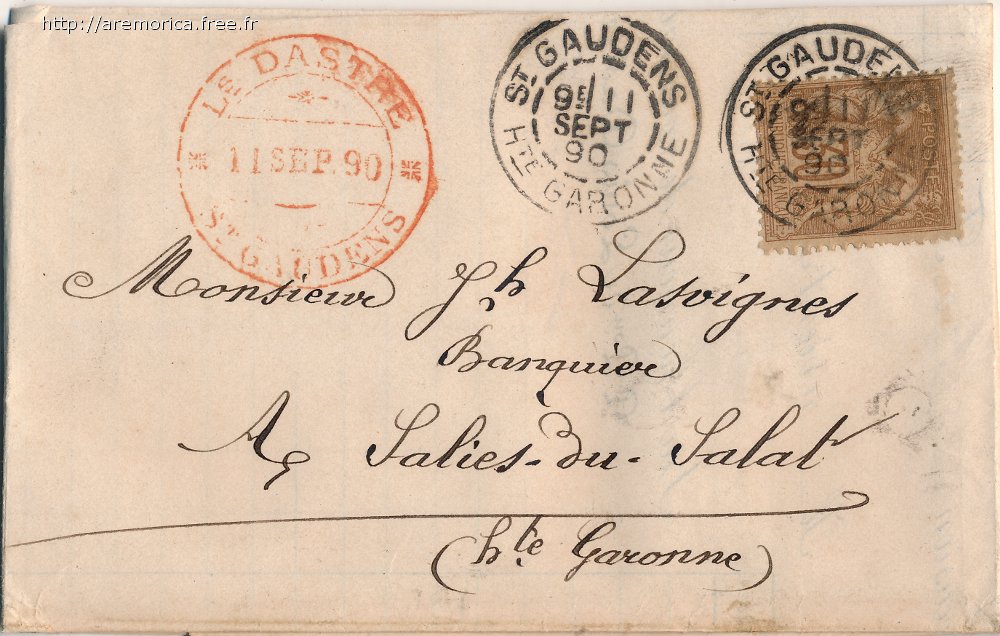 http://aremorica.free.fr
Ls DASTRE
11 SEP. 90
St GAUDENS
St GAUDENS
9E 11
SEPT
90
Hte GARONNE
St GAUDENS
9E 11
SEPT
90
Hte GARONNE
Monsieur Jh Lasvignes
Banquier
A Salies-du-Salat
(hte Garonne)